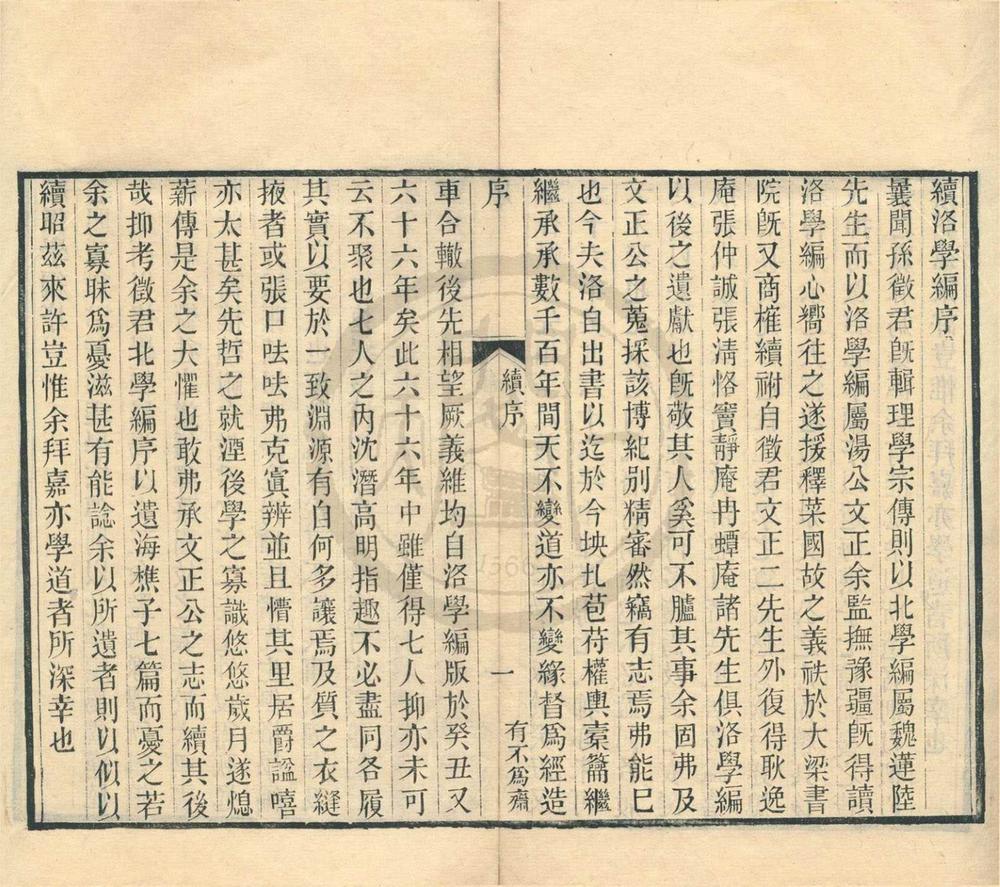 續洛學編序
曩聞孫徵君旣輯理學宗傳則以北學編屬魏蓮陸
先生而以洛學編屬湯公文正余監撫豫疆旣得讀
洛學編心嚮往之遂援釋菜國故之義祑於大梁書
院旣又商榷續祔自徵君文正二先生外復得耿逸
庵張仲誠張淸恪竇靜庵冉蟫庵諸先生俱洛學編
以後之遺獻也旣敬其人奚可不臚其事余固弗及
文正公之蒐採該博紀别精審然竊有志焉弗能已
也今夫洛自出書以迄於今坱圠苞苻權輿橐籥繼
繼承承數千百年間天不變道亦不變緣督爲經造
序
續序
一
有不爲齋
車合轍後先相望厥義維均自洛學編版於癸丑又
六十六年矣此六十六年中雖僅得七人抑亦未可
云不聚也七人之內沈潛高明指趣不必盡同各履
其實以要於一致淵源有自何多讓焉及質之衣縫
掖者或張口呿呿弗克寘辨並且懵其里居爵諡嘻
亦太甚矣先哲之就湮後學之寡識悠悠歲月遂熄
薪傳是余之大懼也敢弗承文正公之志而續其後
哉抑考徵君北學編序以遺海樵子七篇而憂之若
余之寡昧爲憂滋甚有能諗余以所遺者則以似以
續昭茲來許豈惟余拜嘉亦學道者所深幸也